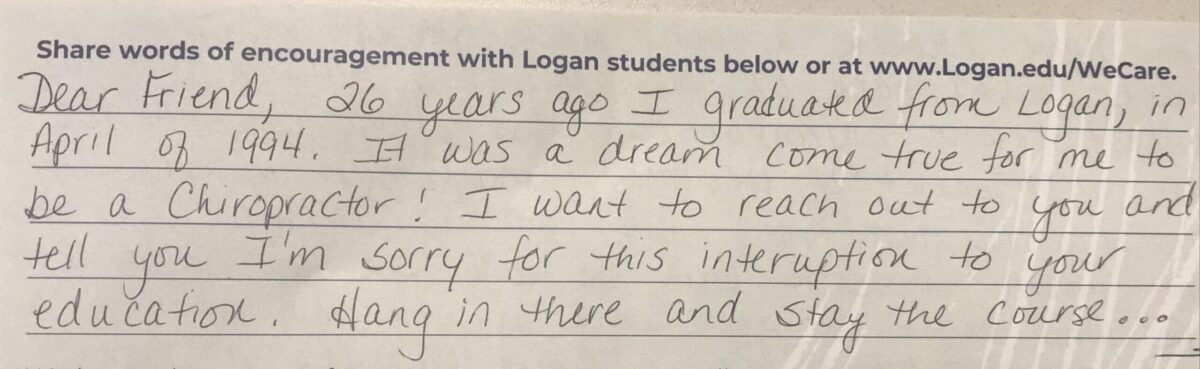 Share words of encouragement with Logan students below or at www.Logan.edu/WeCare.
Dear Friend, 26 years ago I graduated from Logan, in
April of 1994. It was a dream come true for me to
be a Chiropractor! I want to reach out to you and
tell you I'm sorry for this interuption to your
education. Hang in there and stay the course...